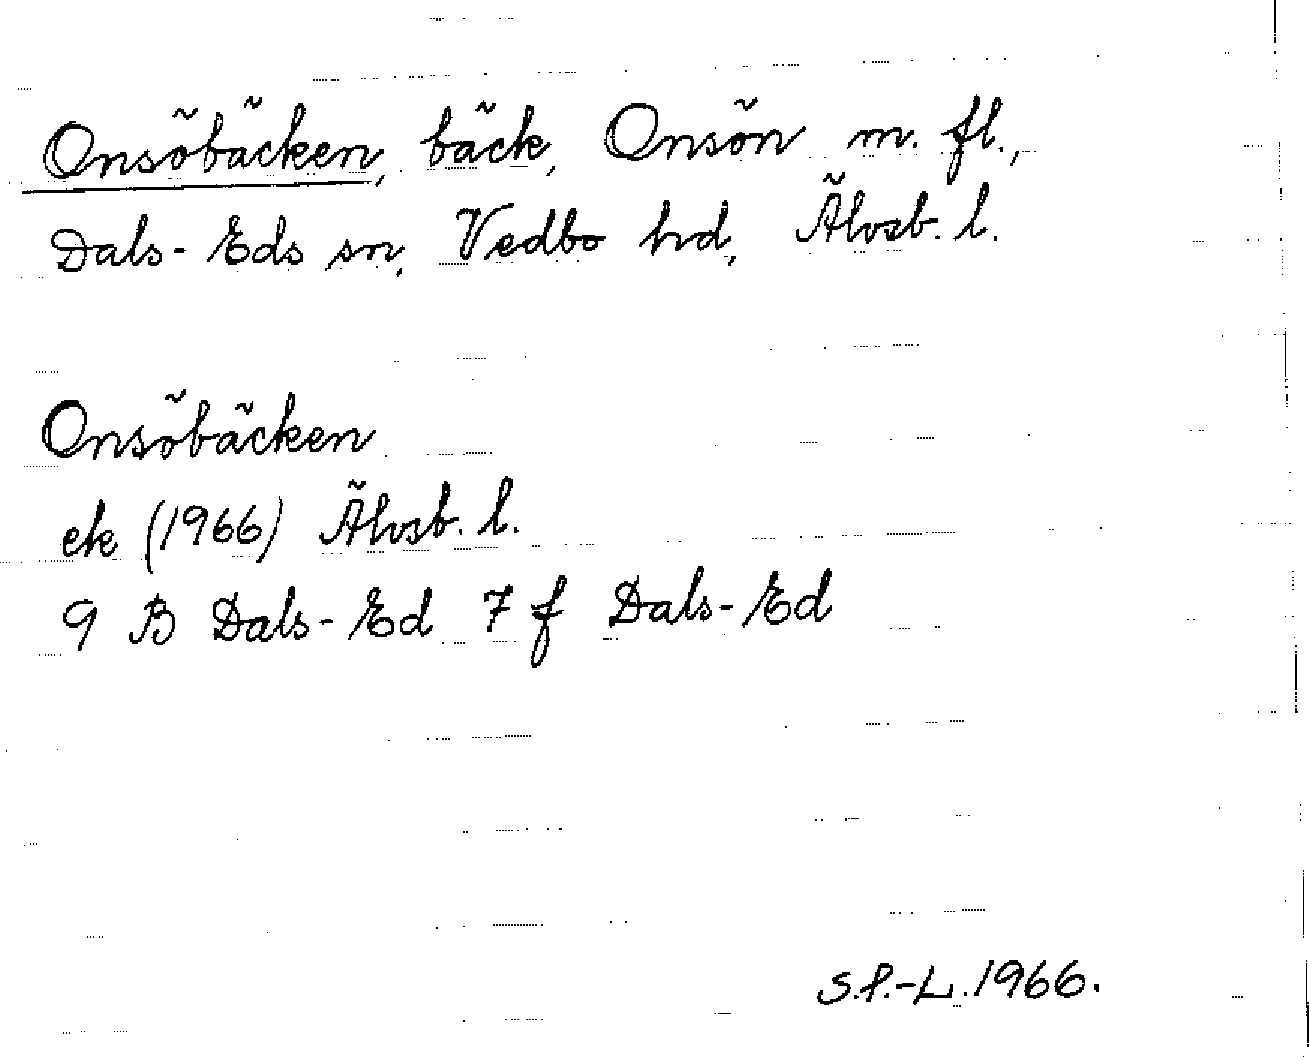 Onsöbäcken, bäck, Onsön m. fl.,
Dals-Eds sn, Vedbo hd, Älvsb. l.
Onsöbäcken
ek (1966) Älvsb. l.
9 B Dals-Ed 7 f Dals-Ed
S.P.-L. 1966.